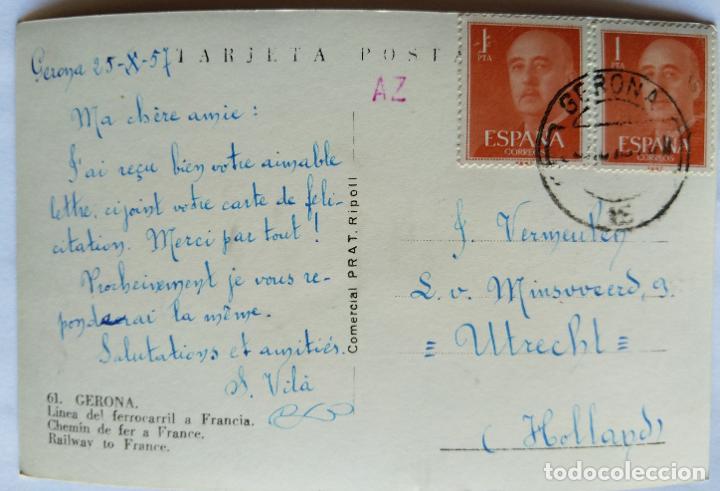 Gerona 25-X-57
TARJETA POSTA
AZ
1
PTA
ESPAÑA
CORREOS
1
PTA
ESPAÑA
CORREOS
GERONA
Ma chère amie :
J'ai reçu bien votre aimable
lettre, cijoint votre carte de feli-
citation. Merci par tout !
Procheinement je vous re-
ponderai la même.
Salutations et amitiés.
S. Vilà
61. GERONA.
Línea del ferrocarril a Francia.
Chemin de fer a France.
Railway to France.
Comercial PRAT. Ripoll
J. Vermeulen
L. v. Minsweerd, 9.
= Utrecht =
(Holland)
todocoleccion.net